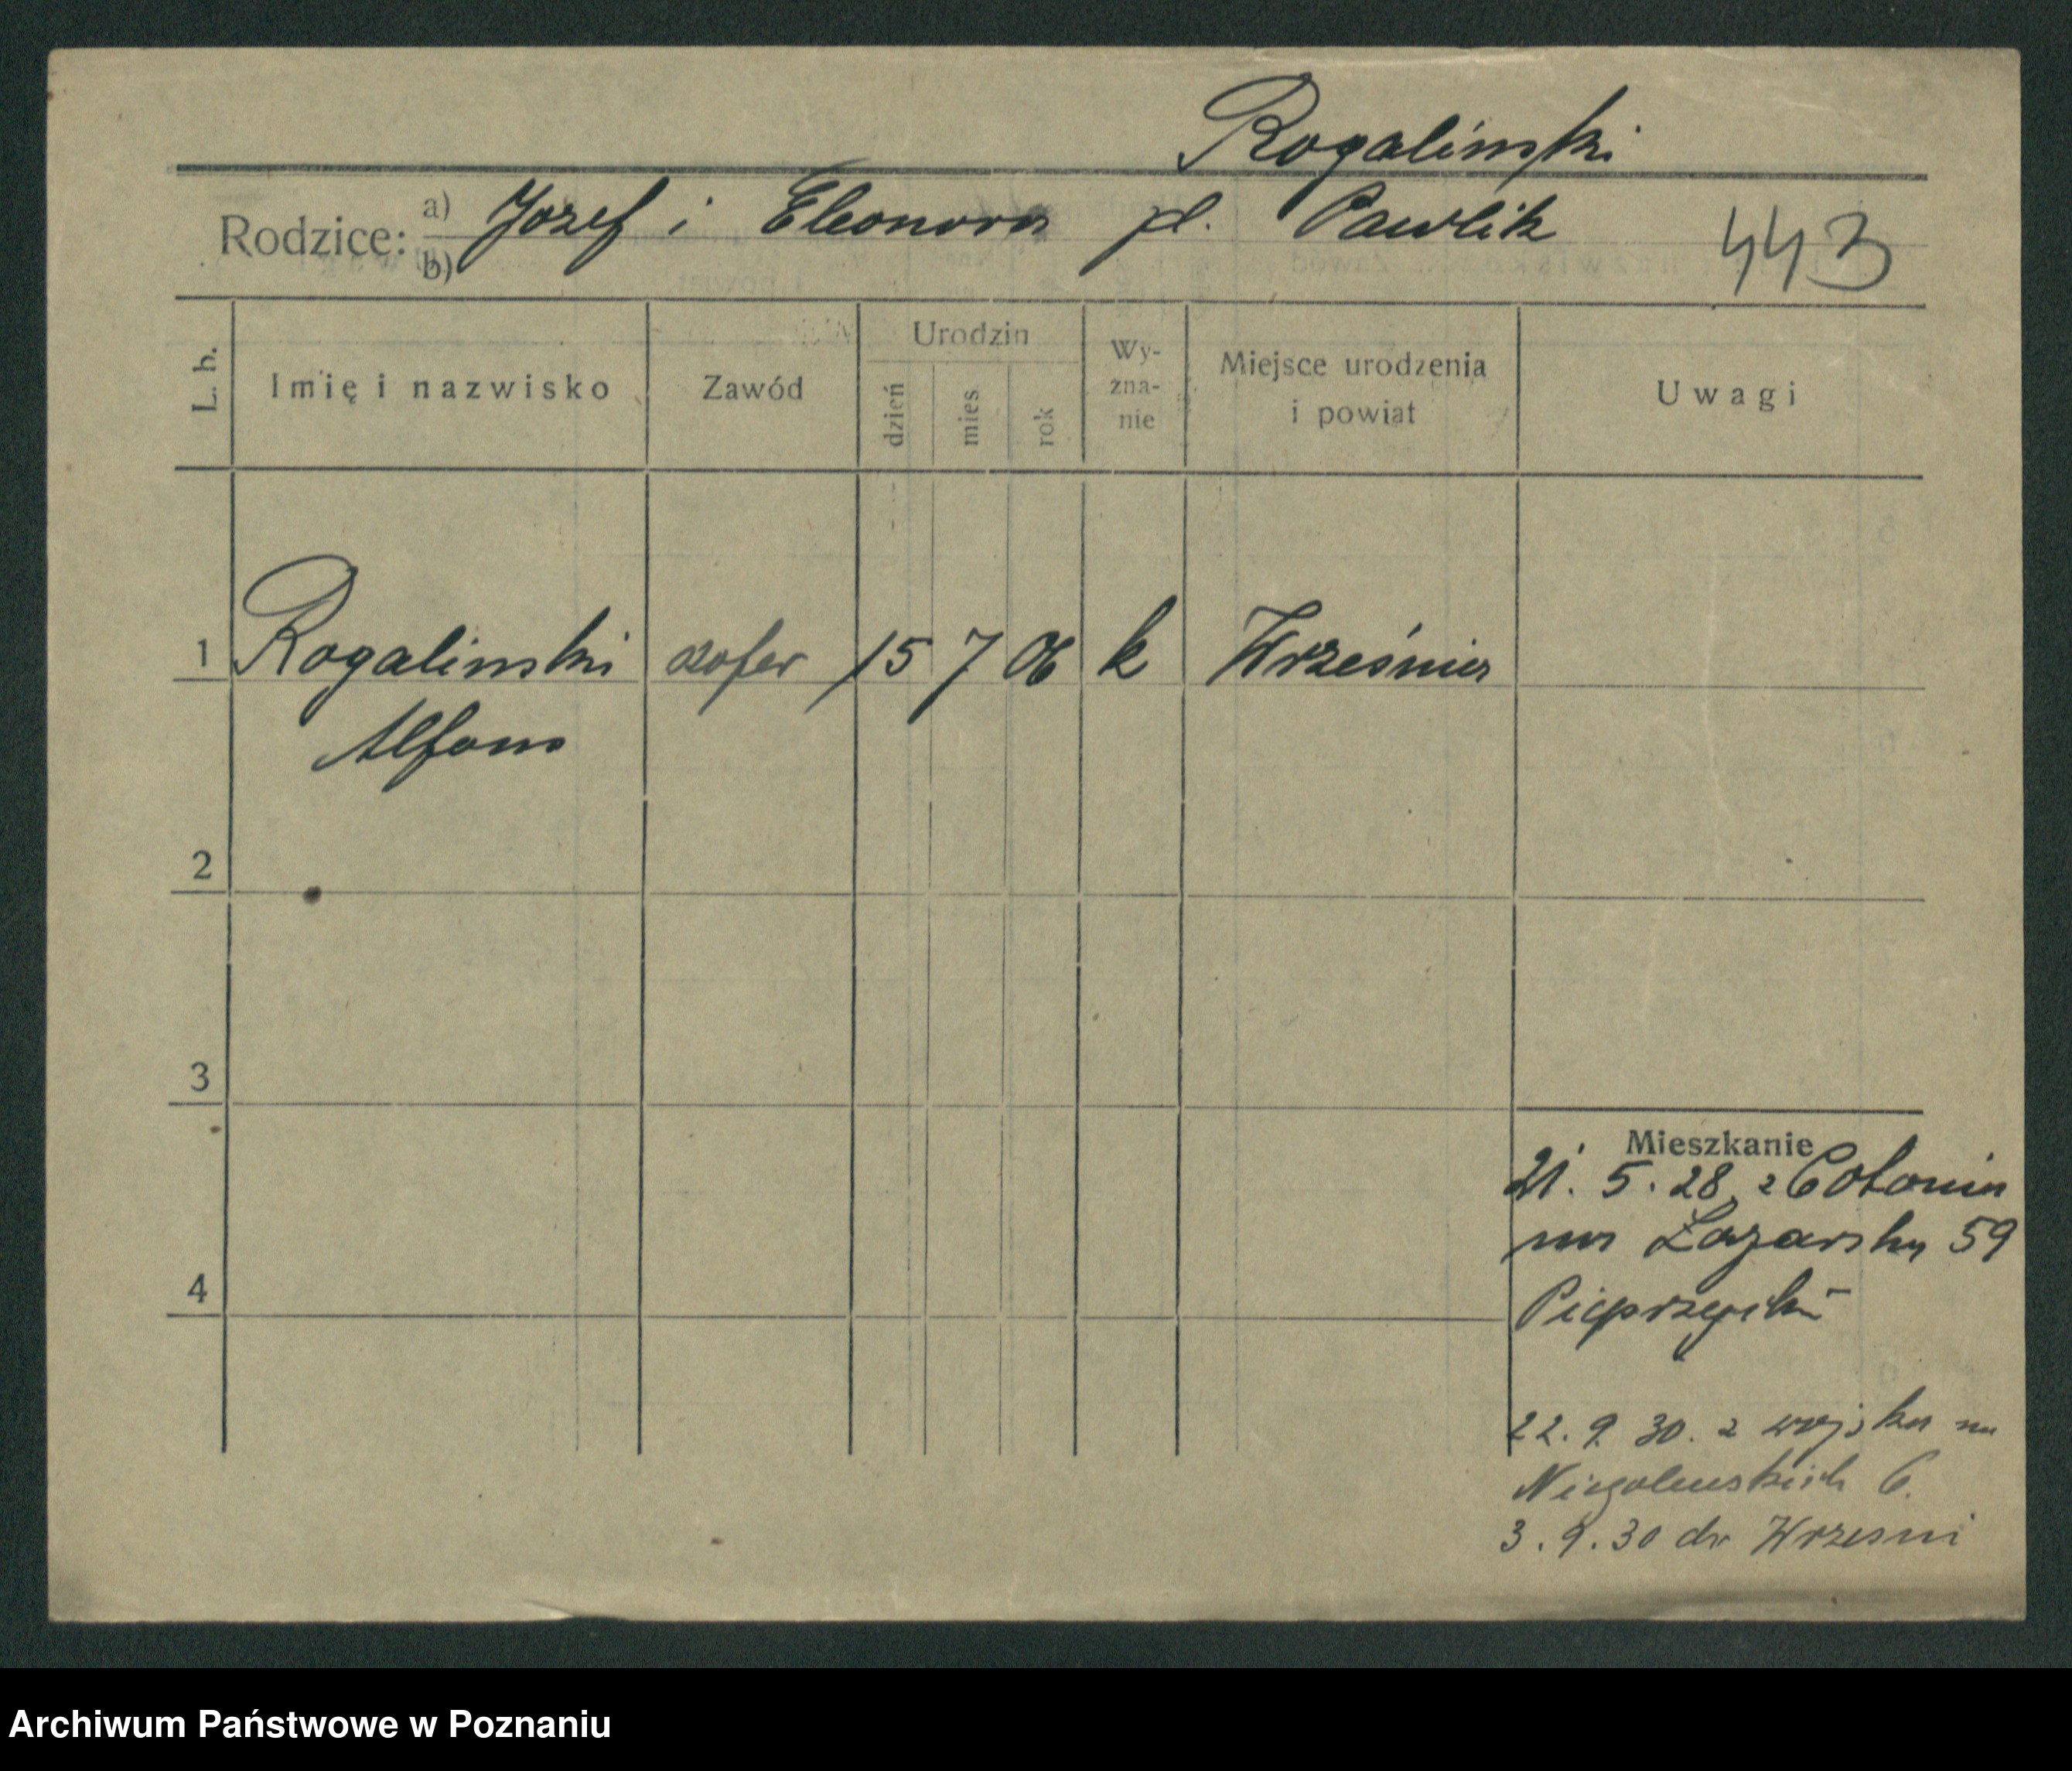 Rogalinski
Rodzice: a) b) Jozef i Eleonora jd. Pawlik 443
L. b. Imię i nazwisko Zawód Urodzin dzień mies rok Wy-zna-nie Miejsce urodzenia i powiat Uwagi
1 Rogalinski szofer 15 7 06 k Września
Alfons
2
3
Mieszkanie
21. 5. 28 z
na Łazarska 59
4
22. 9. 30. z wojska na
Niegolewskich 6.
3. 9. 30 do Wrzesni
Archiwum Państwowe w Poznaniu